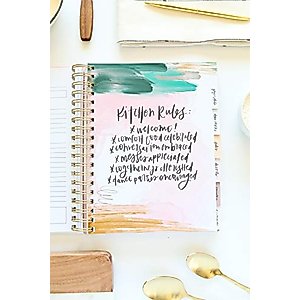 Kitchen Rules:
x welcome!
x comfort food celebrated
x conversation embraced
x messes appreciated
x togetherness
x dance parties encouraged